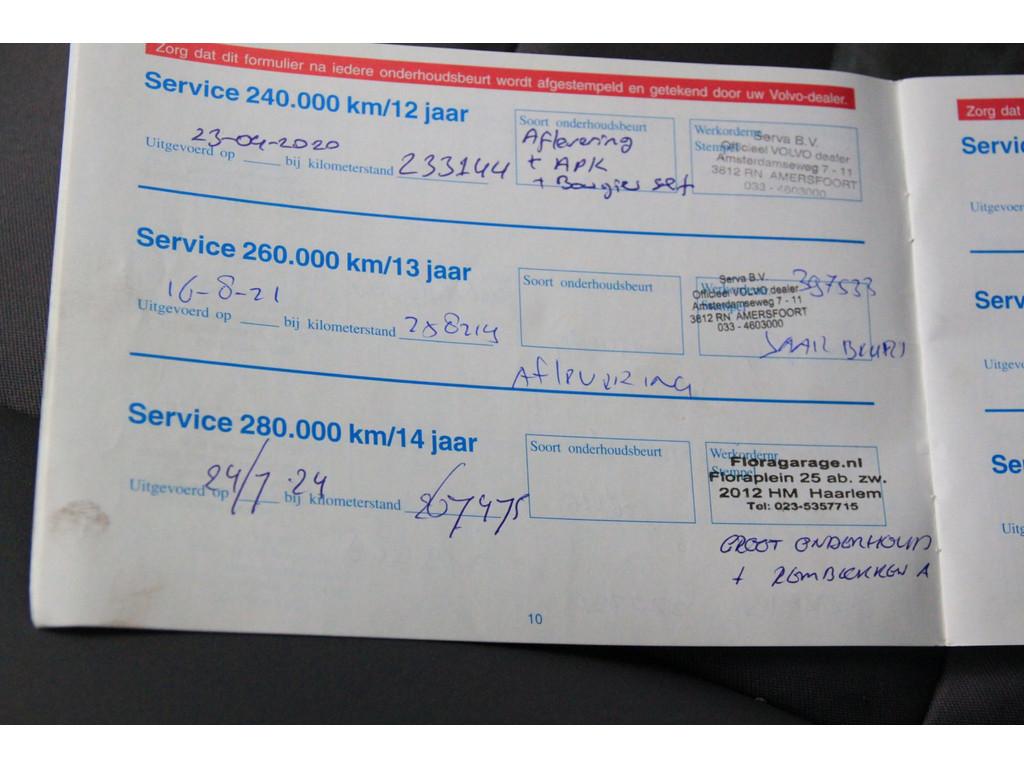 Zorg dat dit formulier na iedere onderhoudsbeurt wordt afgestempeld en getekend door uw Volvo-dealer.
Service 240.000 km/12 jaar
23-04-2020
Uitgevoerd op ____ bij kilometerstand 233144
Soort onderhoudsbeurt
Aflevering
+ APK
+ Bougies set
Werkordernr.
Stempel
Serva B.V.
Officieel VOLVO dealer
Amsterdamseweg 7 - 11
3812 RN AMERSFOORT
033 - 4603000
Service 260.000 km/13 jaar
16-8-21
Uitgevoerd op ____ bij kilometerstand
Soort onderhoudsbeurt
Serva B.V.
Officieel VOLVO dealer
Amsterdamseweg 7 - 11
3812 RN AMERSFOORT
033 - 4603000
397533
JAAR BEURT
Service 280.000 km/14 jaar
24/7-24
Uitgevoerd op ____ bij kilometerstand 267475
Soort onderhoudsbeurt
Werkordernr.
Stempel
Floragarage.nl
Floraplein 25 ab. zw.
2012 HM Haarlem
Tel: 023-5357715
GROOT ONDERHOUD
+ REMBLOKKEN A
10
Zorg dat
Servic
Uitgevoer
Serv
Uitgev
Se
Uitg